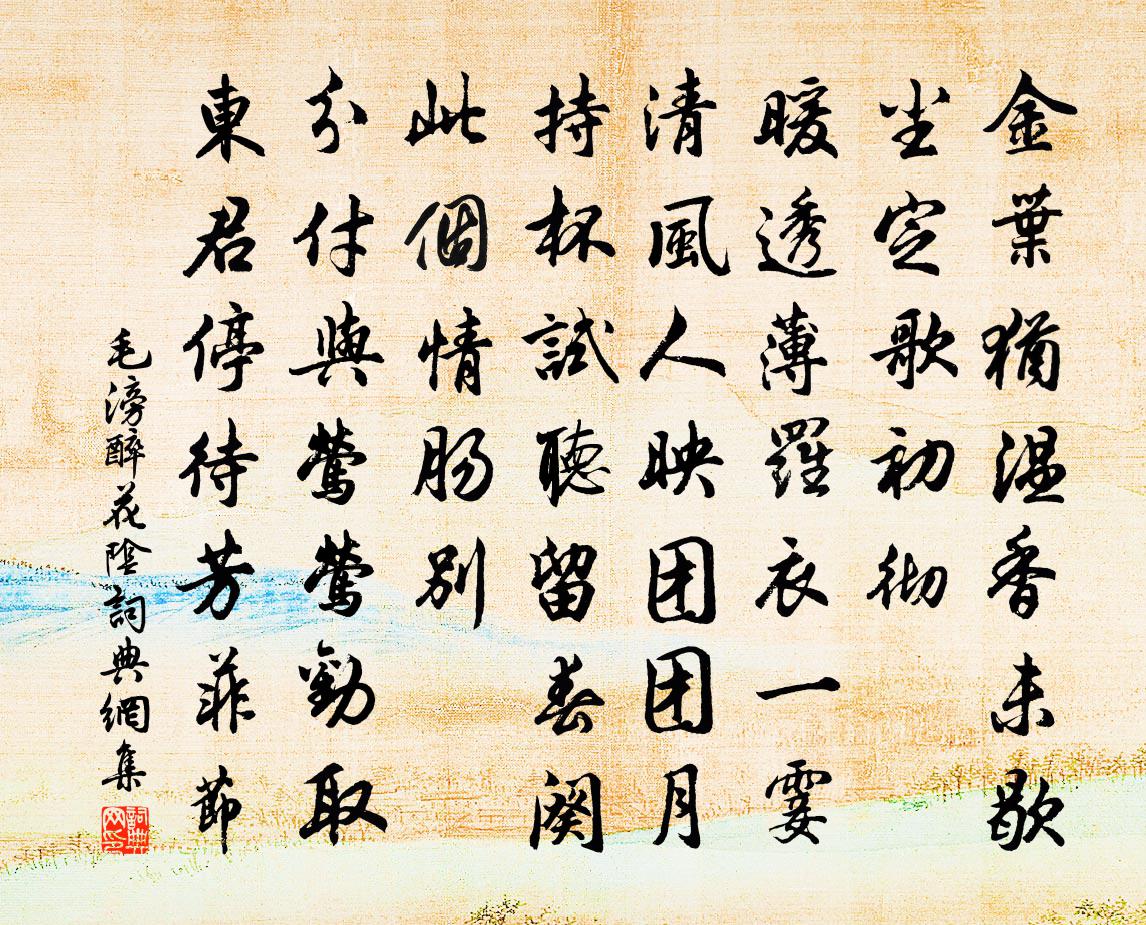 金葉猶温香未歇
尘定歌初彻
暖透薄羅衣一霎
清風人映团团月
持杯試聽留春闋
此個情肠别
分付與鶯鶯勸取
東君停待芳菲節
毛滂醉花陰詞典網集
詞典网印